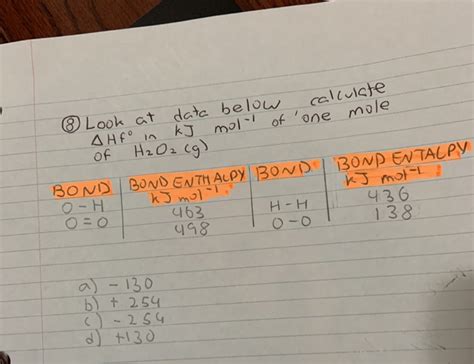 ⑧ Look at data below calculate
ΔHf° in kJ mol⁻¹ of one mole
of H₂O₂ (g)
BOND BOND ENTHALPY kJ mol⁻¹ BOND BOND ENTALPY kJ mol⁻¹
O-H 463 H-H 436
O=O 498 O-O 138
a) -130
b) + 254
c) -254
d) +130